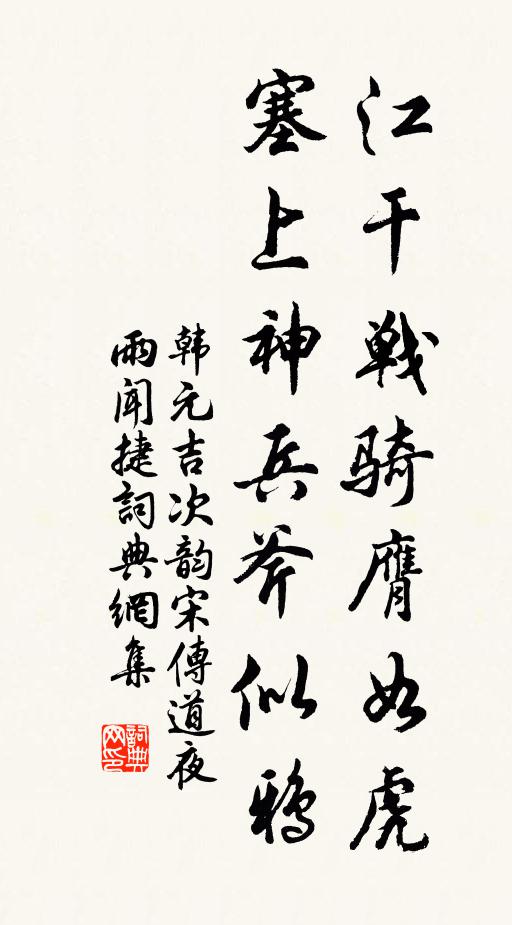 江干戰骑膺如虎
塞上神兵斧似鴉
韩元吉次韵宋傳道夜
雨闻捷詞典網集
詞典
网印